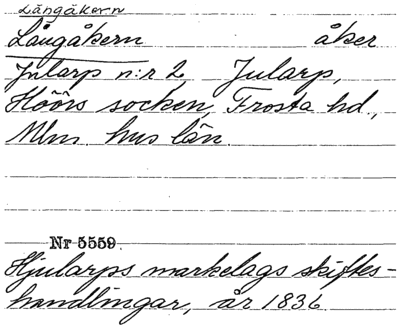 Långåkern
Långåkern åker
Jularp n:r 2, Jularp,
Höörs socken, Frosta hd.,
Mlm. hus län.
Nr 5559.
Hjularps markelags skiftes-
handlingar, år 1836